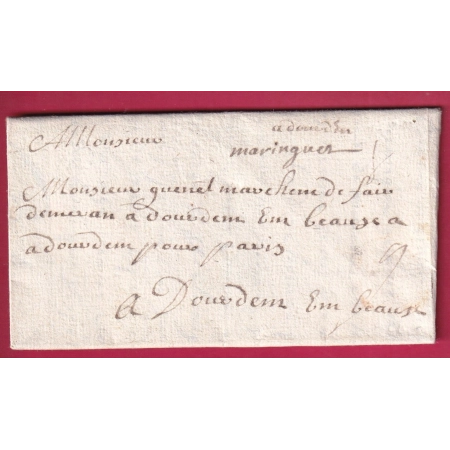 a dourden
AMonsieur
maringues
Monsieur quenel marchem de fair
demeran a dourdem Em beause a
a dourdem pour paris
9
a Dourdem Em beause